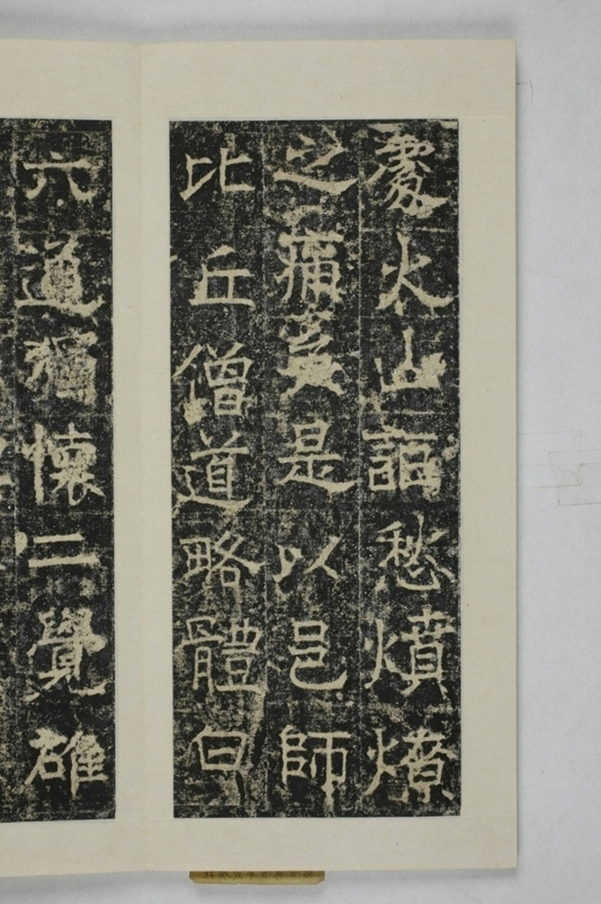 處火山詎愁燌燎
之痛矣是以邑師
比丘僧道略體曰
六道獨懷二覺碓